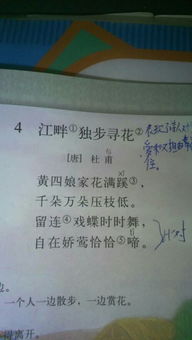 4 江畔①独步寻花②
[唐] 杜甫
fǔ
黄四娘家花满蹊③，
xī
千朵万朵压枝低。
留连④戏蝶时时舞，
自在娇莺恰恰⑤啼。
tí
一个人一边散步，一边赏花。
得离开。